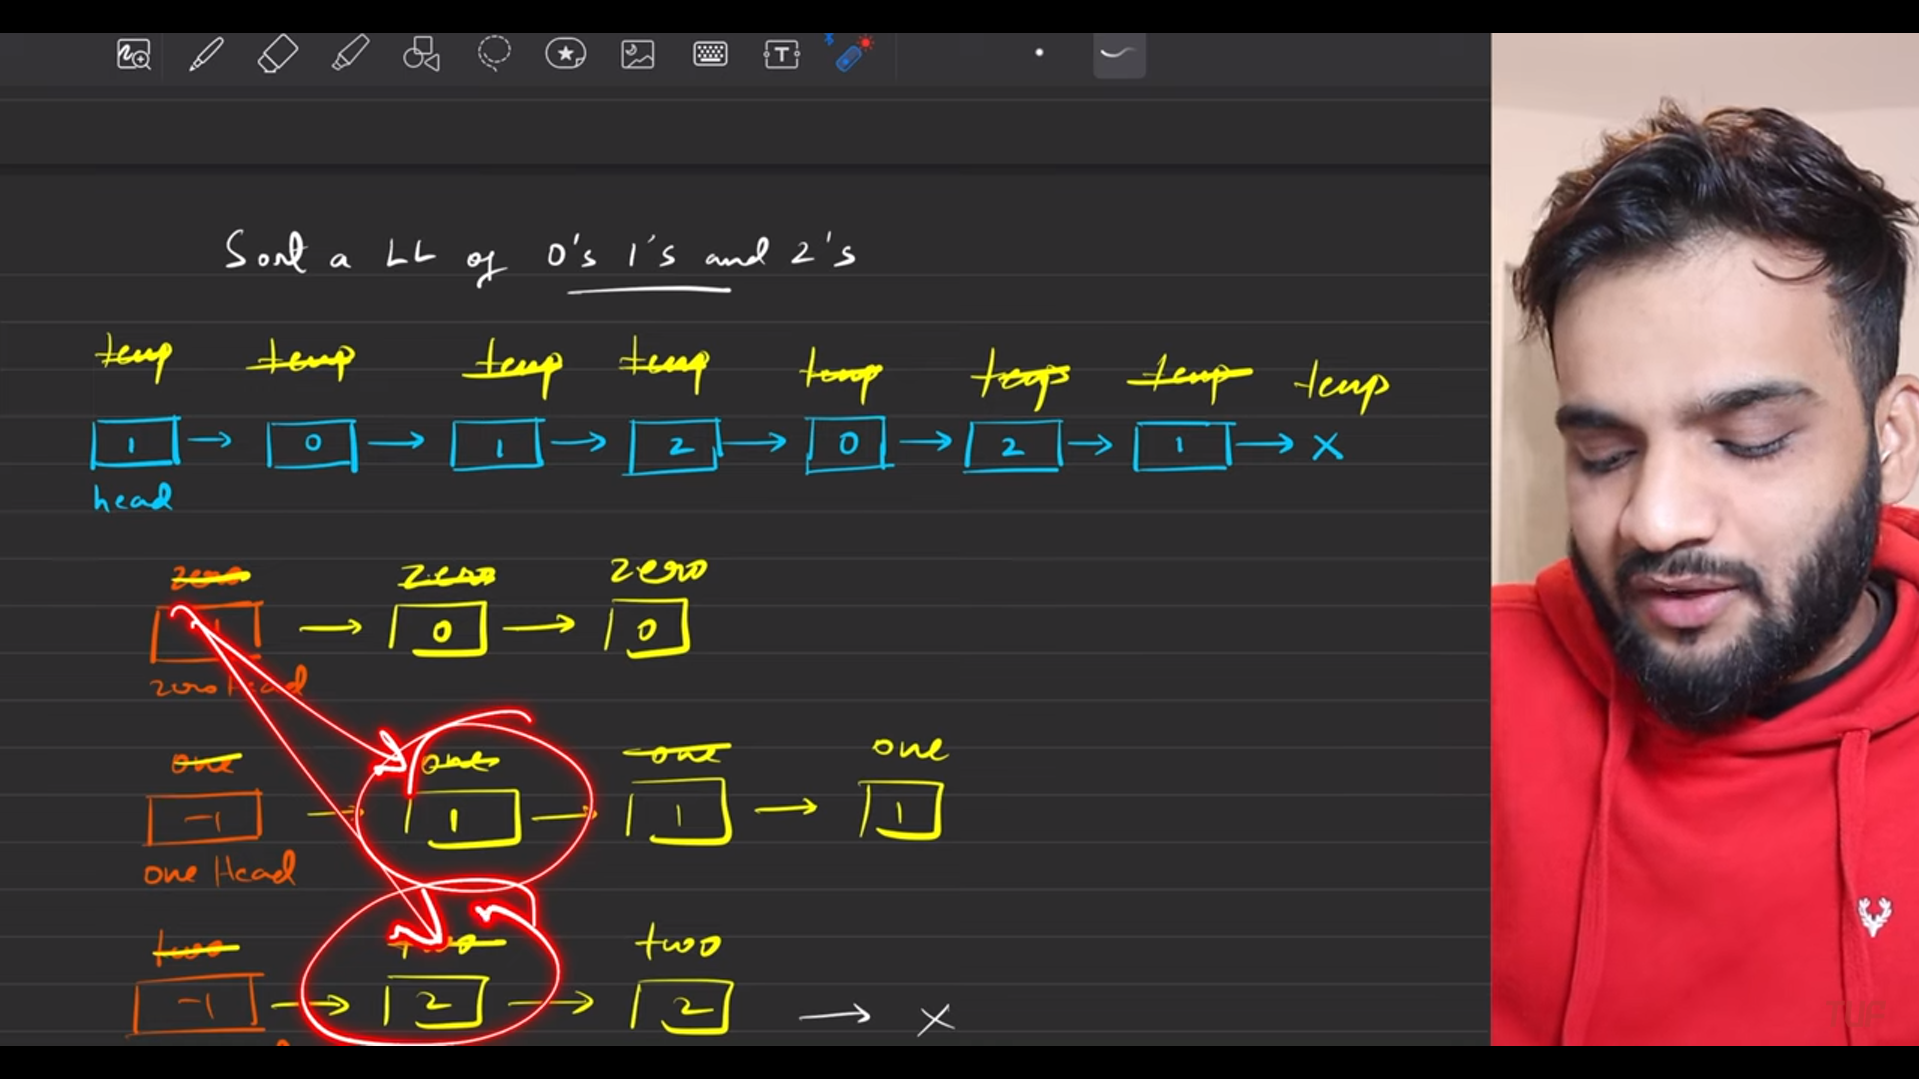 Sort a LL of 0's 1's and 2's
temp temp temp temp temp temp temp temp
1 → 0 → 1 → 2 → 0 → 2 → 1 → X
head
zero zero zero
→ 0 → 0
zero Head
one one one one
-1 → 1 → 1 → 1
one Head
two two two
-1 → 2 → 2 → X
TUF